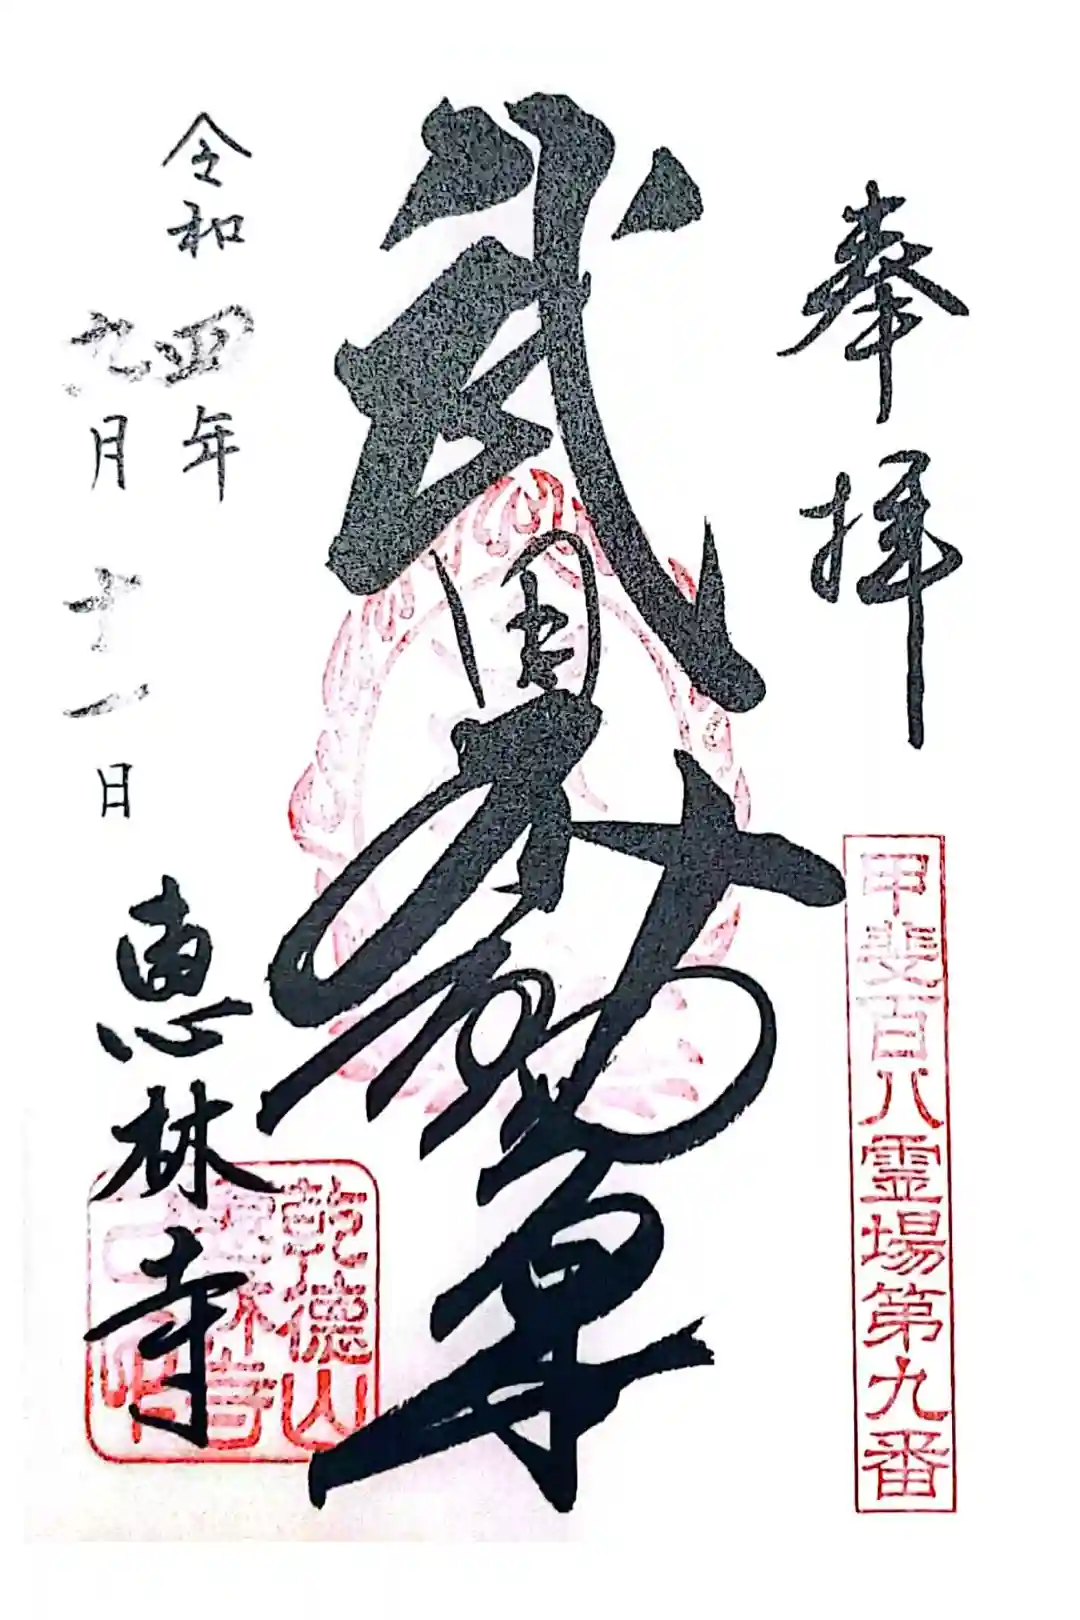 奉拝
甲斐百八霊場第九番
武田不動尊
令和四年
九月十一日
恵林寺
乾徳山
恵林寺